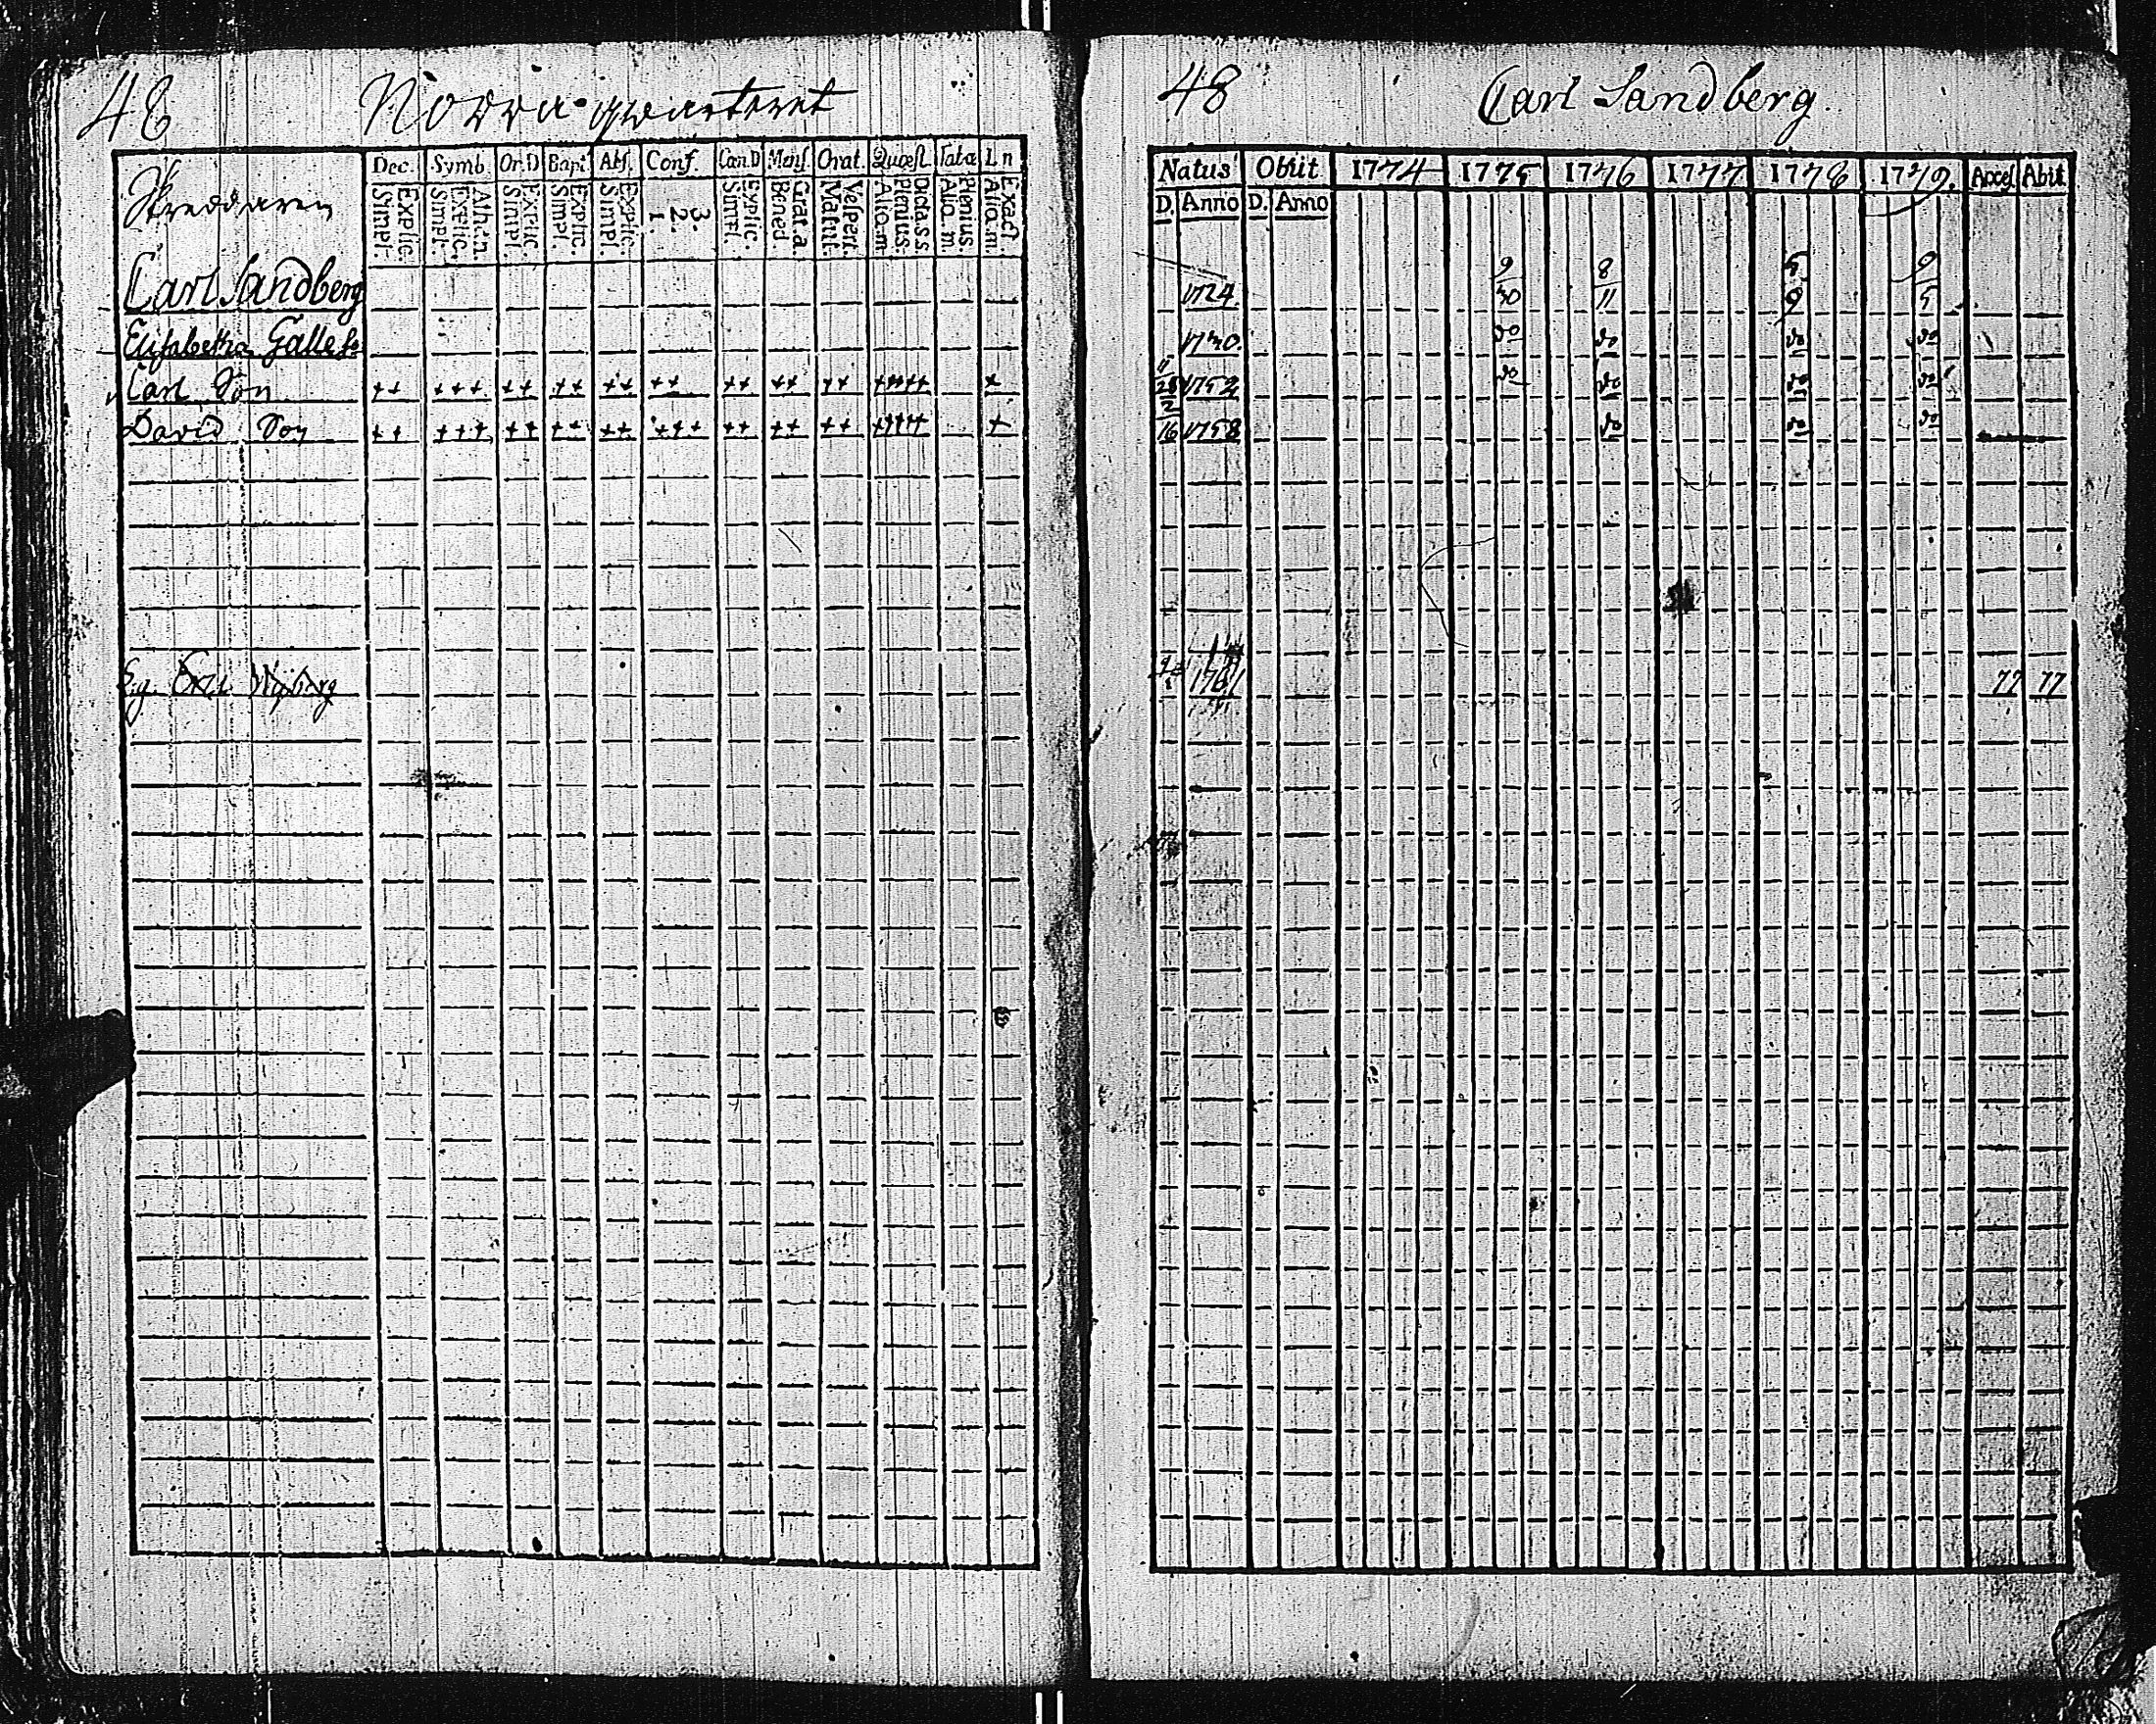 48 Norra qwarteret
Dec. Symb. Or.D Bapt. Abs. Conf. Can.D Mens. Orat. Quæst. Tabæ Ln
Explic. Simpl.
Athan. Explic. Simpl.
Explic. Simpl.
Explic. Simpl.
Explic. Simpl.
3. 2. 1.
Explic. Simpl.
Grat.a. Bened
Vespert. Matut.
Dicta.s.s Plenius. Alio.m.
Plenius. Alio m.
Exact. Alio.m.
Skreddaren
Carl Sandberg
Elisabetha Galle
Carl Son ++ +++ ++ ++ ++ ++ ++ ++ ++ +++++ +
David Son ++ +++ ++ ++ ++ +++ ++ ++ ++ +++++ +
48 Carl Sandberg.
Natus Obiit 1774 1775 1776 1777 1778 1779. Acces. Abiit
D. Anno D. Anno
1724. 9/30 8/11 5/9 9/5
1730. do do do do
11/28 1752 do do do do
2/16 1758 do do do
1761 77 77